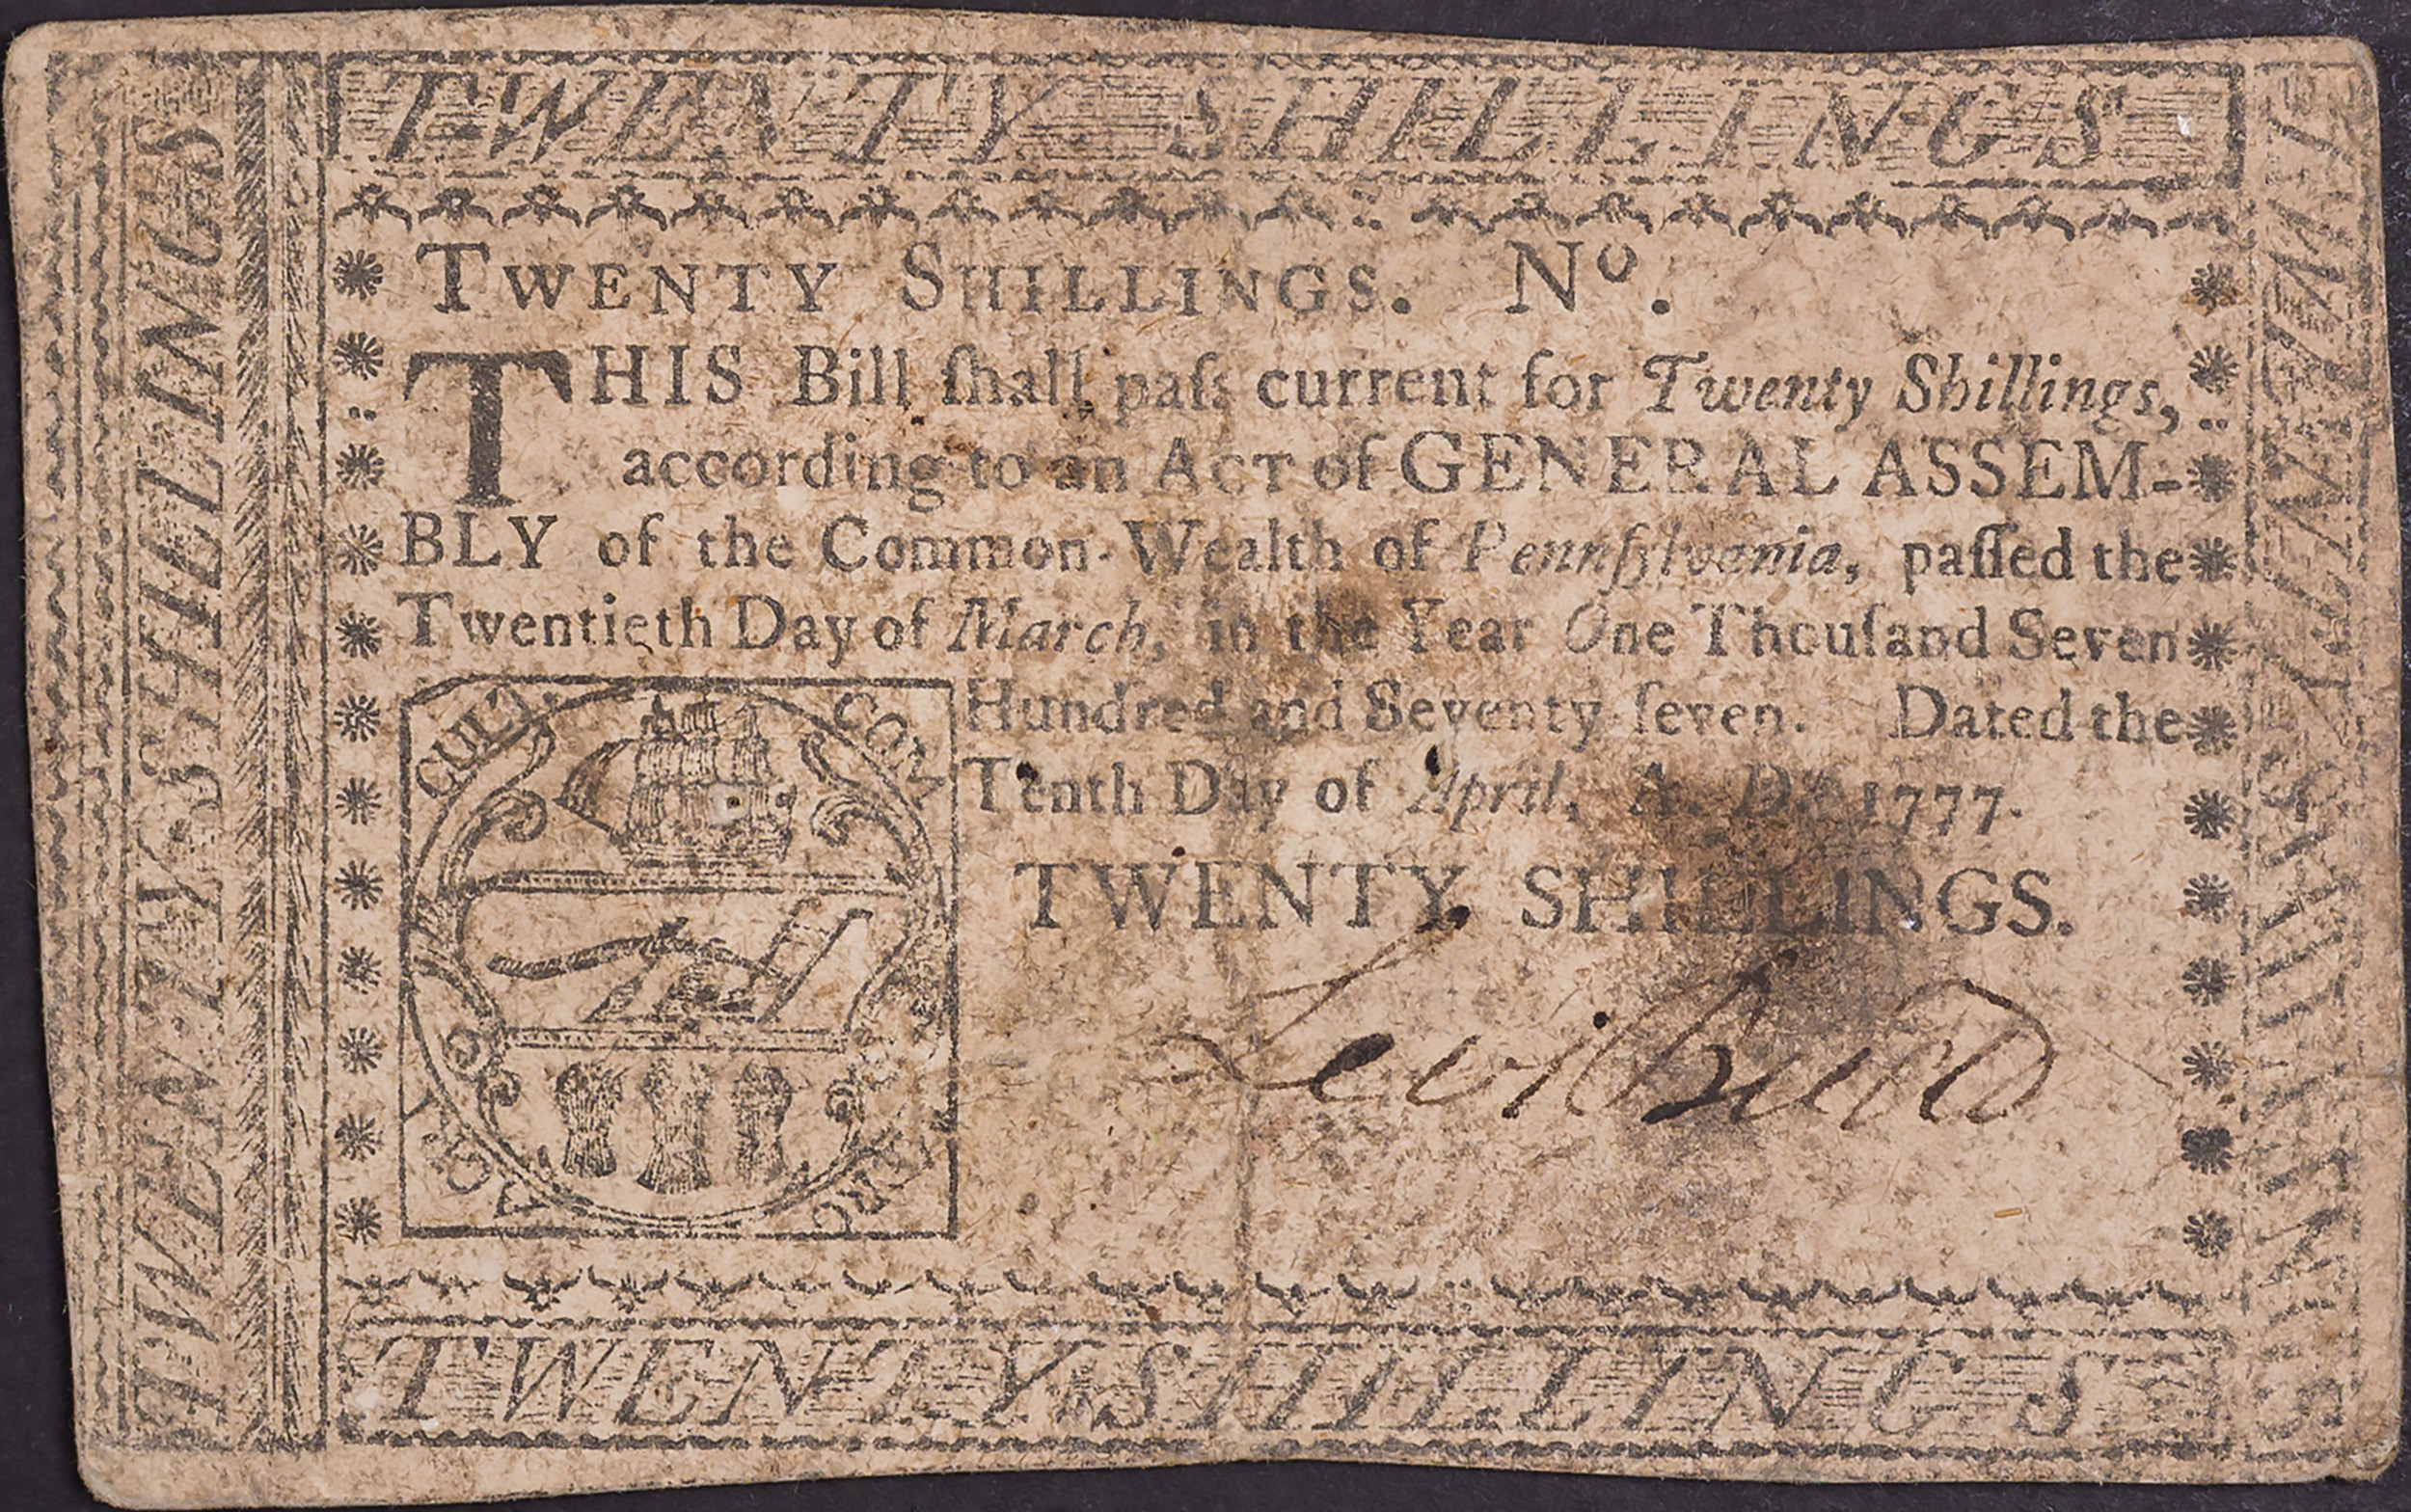 TWENTY SHILLINGS
TWENTY SHILLINGS
TWENTY SHILLINGS
TWENTY SHILLINGS. No.
THIS Bill ſhall paſs current for Twenty Shillings,
according to an ACT of GENERAL ASSEM-
BLY of the Common-Wealth of Pennſylvania, paſſed the
Twentieth Day of March, in the Year One Thouſand Seven
Hundred and Seventy-ſeven. Dated the
Tenth Day of April, A. D. 1777.
TWENTY SHILLINGS.
CULT. COM
AGR
Levi Budd
TWENTY SHILLINGS